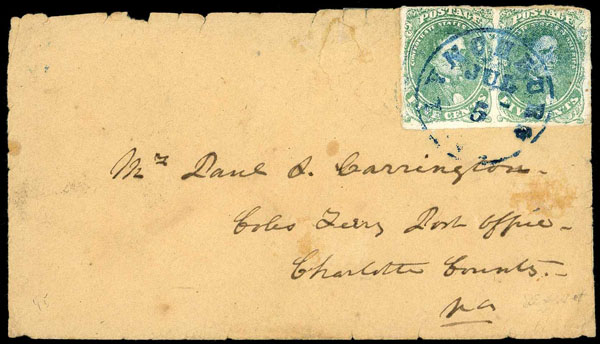 POSTAGE POSTAGE
CONFEDERATE STATES
FIVE CENTS CENTS
LYNCHBURG
JUL
5
Mr Paul S. Carrington.
Coles Ferry Post Office.
Charlotte County.
Va